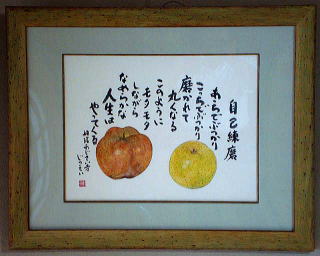 自己練磨
あちらでぶつかり
こっちでぶつかり
磨がれて
丸くなる
このように
モタモタ
しながら
なめらかな
人生は
やってくる